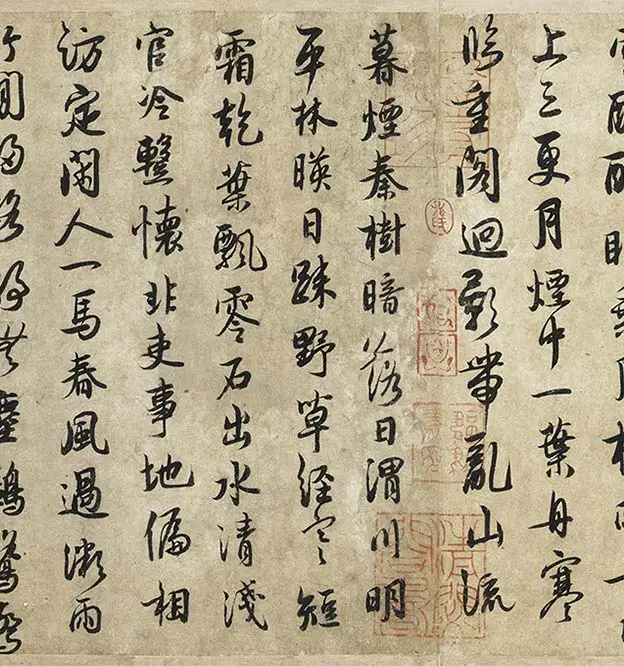 上三更月煙中一葉舟寒
臨重閣迥影帶亂山流
暮煙秦樹暗落日渭川明
平林暎日踈野草經寒短
霜乾葉飄零石出水清淺
官冷整懷非吏事地偏相
訪定閑人一馬春風過微雨
竹間歸路無塵